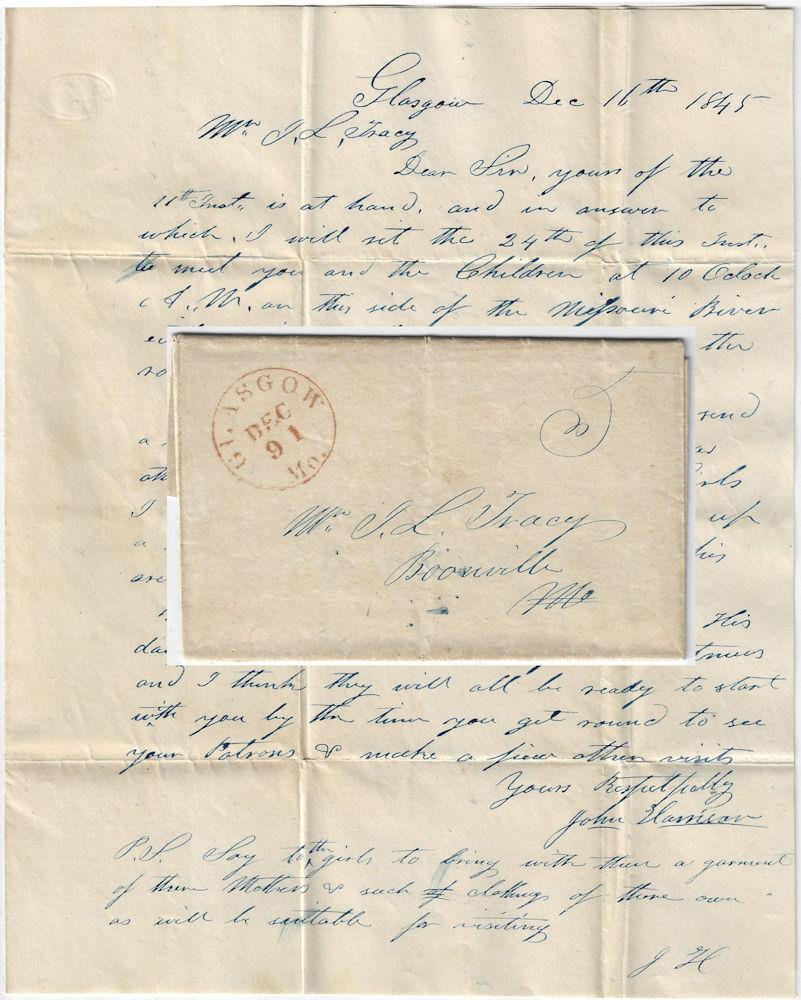 Glasgow Dec 16th 1845
Mr. J. L. Tracy
Dear Sir, yours of the
11th Inst. is at hand. and in answer to
which. I will set the 24th of this Inst.,
to meet you and the Children at 10 Oclock
A. M. on this side of the Missouri River
the
ro
send
a
as
oth
irls
I
up
a
his
are
His
da
and I think they will all be ready to start
with you by the time you get round to see
your Patrons & make a few other visits
Yours Respectfully
John Harrison
P.S. Say to the girls to bring with them a garment
of their Mothers & such of clothings of there own
as will be suitable for visiting
J H
GLASGOW Mo.
DEC
91
5
Mr. J. L. Tracy
Boonville
Mo